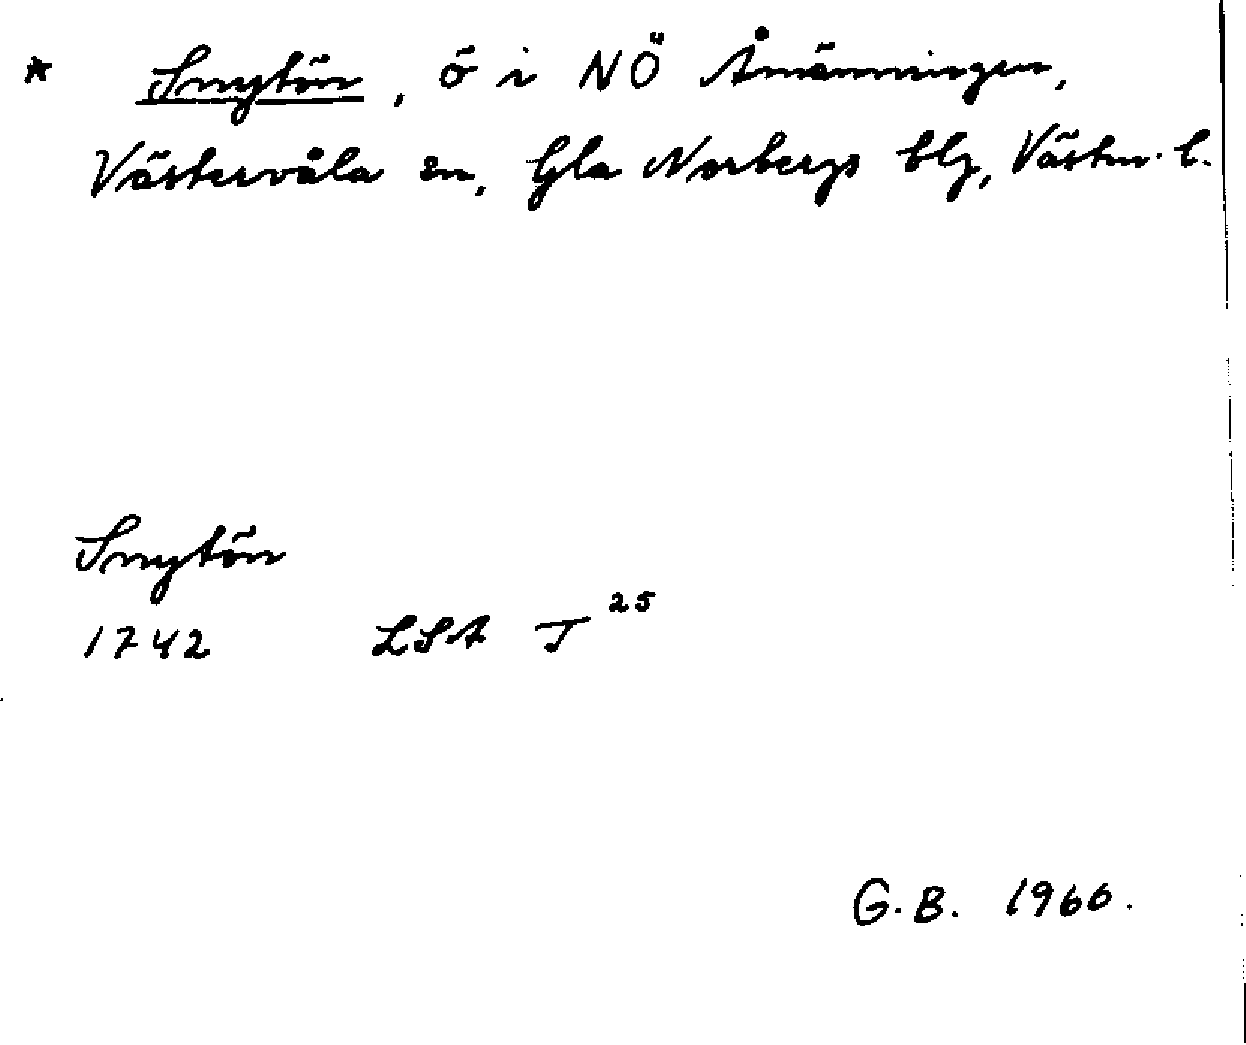 * Snytön, ö i NÖ Åmänningen,
Västervåla sn, Gla Norbergs blg, Västm. l.
Snytön
1742 LSA T 25
G.B. 1966.